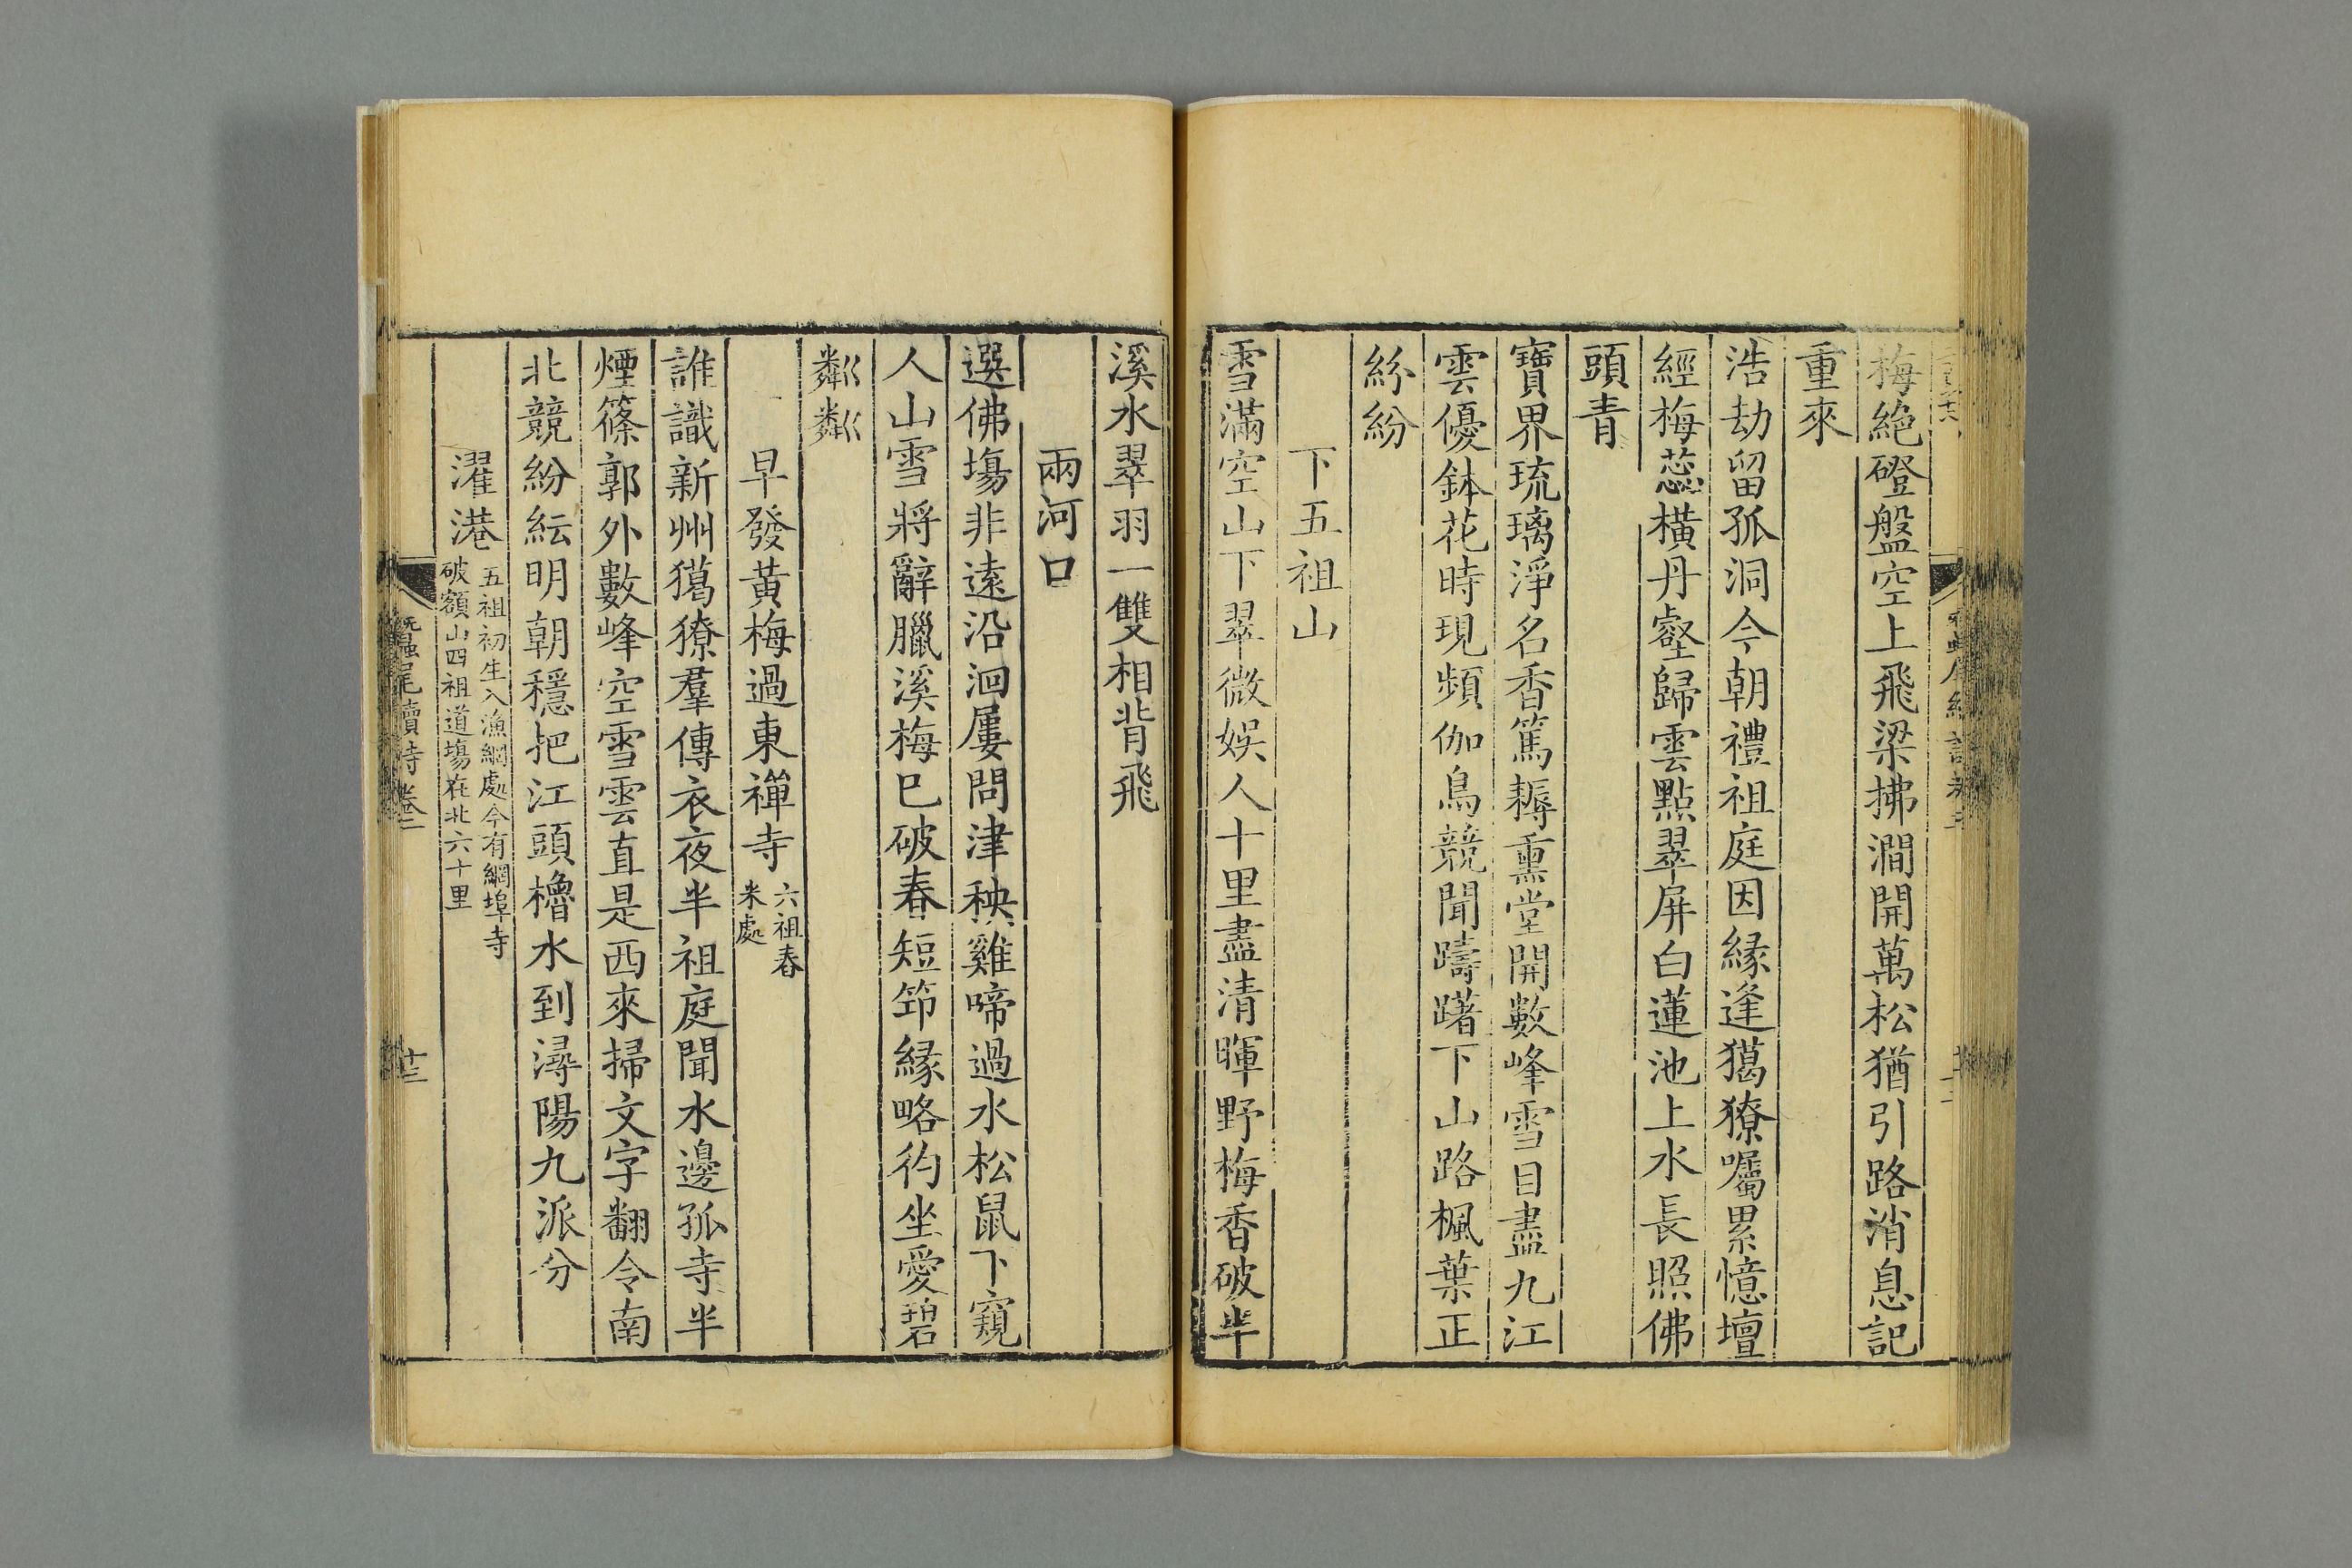 梅絶磴盤空上飛梁拂澗開萬松猶引路消息記
重來
浩劫留孤洞今朝禮祖庭因緣逢獦獠囑累憶壇
經梅蕊橫丹壑歸雲點翠屏白蓮池上水長照佛
頭青
寶界琉璃淨名香篤耨熏堂開數峰雪目盡九江
雲優鉢花時現頻伽鳥競聞躊躇下山路楓葉正
紛紛
下五祖山
雪滿空山下翠微娛人十里盡清暉野梅香破半
溪水翠羽一雙相背飛
兩河口
選佛塲非遠沿洄屢問津秧雞啼過水松鼠下窺
人山雪將辭臘溪梅已破春短筇緣略彴坐愛碧
粼粼
早發黃梅過東禪寺六祖舂
米處
誰識新州獦獠羣傳衣夜半祖庭聞水邊孤寺半
煙篠郭外數峰空雪雲直是西來掃文字翻令南
北競紛紜明朝穩把江頭櫓水到潯陽九派分
濯港五祖初生入漁網處今有網埠寺
破額山四祖道塲在北六十里
蠶尾續詩卷二
十三